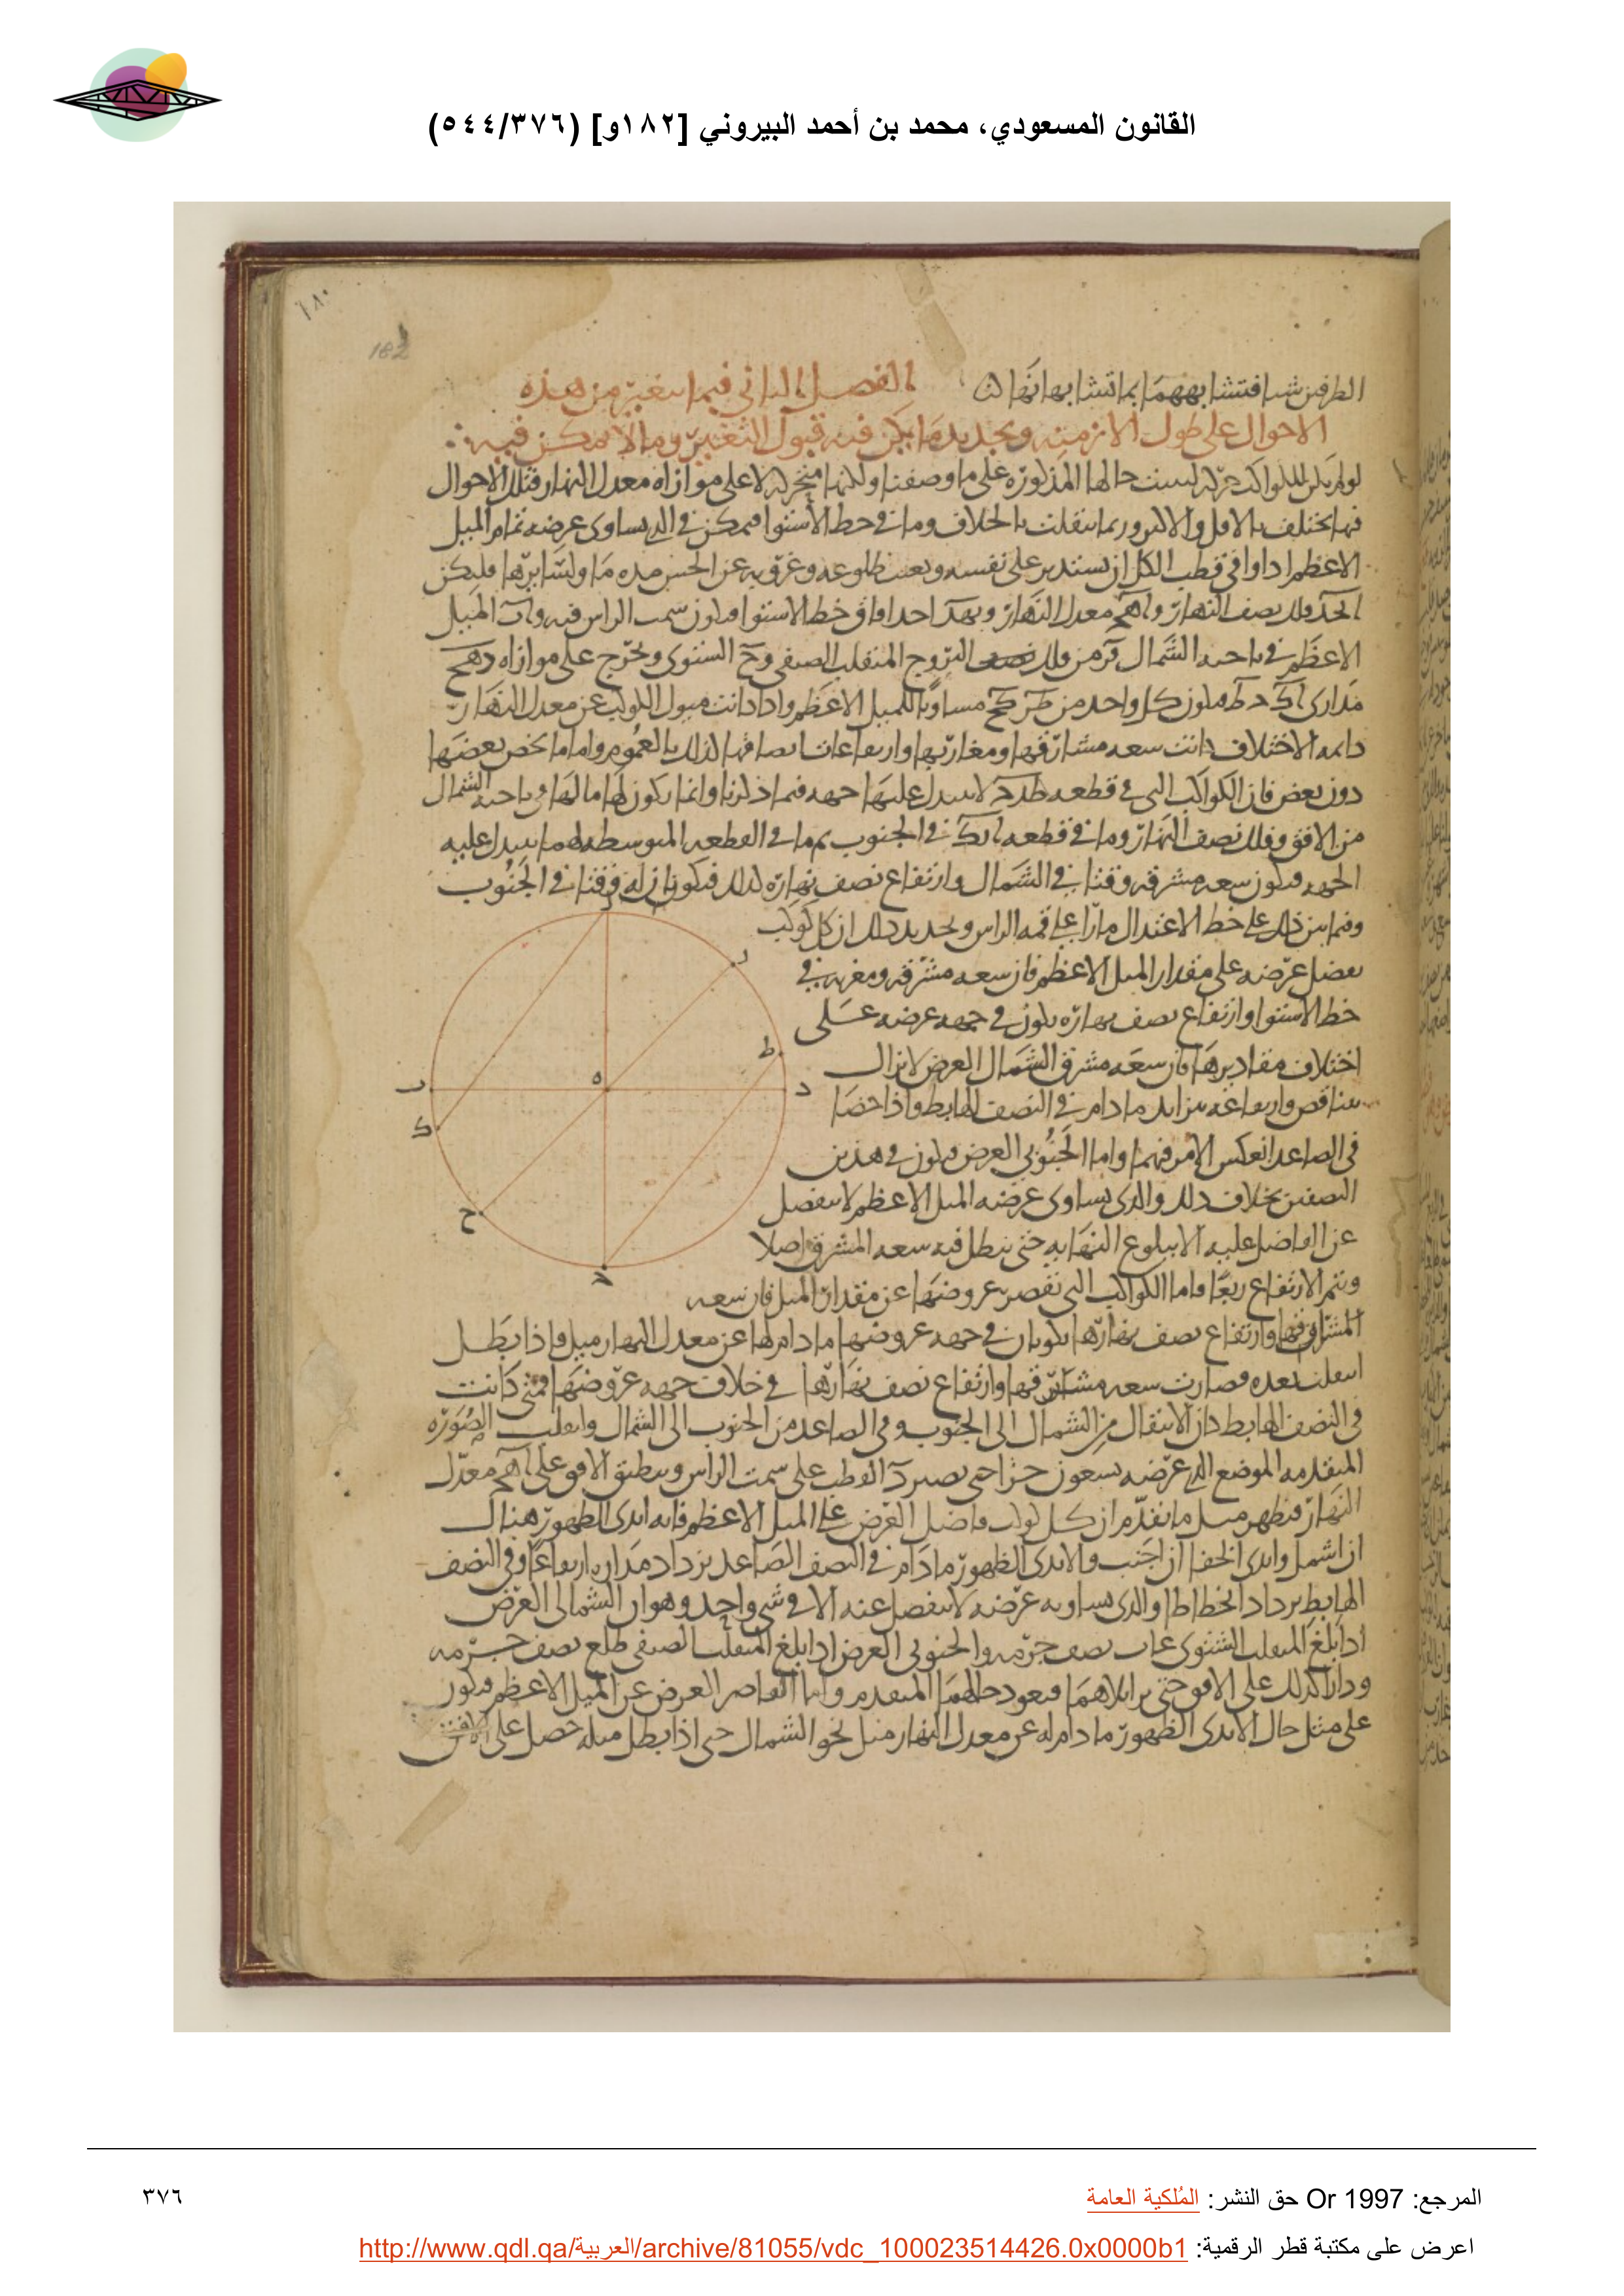 القانون المسعودي، محمد بن أحمد البيروني [١٨٢و] (٥٤٤/٣٧٦)
١٨٠
182
الطرفين شيا فتشابههما بما تشابها نهارا
الفصل الثاني فيما يتغير من هذه
الاحوال على طول الازمنه وتحديد ما يمكن فيه قبول التغير وما لا يمكن فيه
لو لم يكن للكواكب حركة ليست حالها المذكورة على ما وصفنا ولكنها متحركه لا على موازاه معدل النهار فتلك الاحوال
فيها تختلف بالاقل والاكثر وربما انتقلت بالخلاف وما في خط الاستوا فممكن في الذي يساوى عرضه تمام الميل
الاعظم اذا وافى قطب الكل ان يستدير على نفسه ويعدم طلوعه وغروبه عن الحس مده ما ولسايرها فليكن
ا ب ح د فلك نصف النهار و ا ه ح معدل النهار و ب ه د احد افاق خط الاستوا فيكون سمت الراس فيه و ا ر الميل
الاعظم في ناحيه الشمال فر من فلك البروج المنقلب الصيفى و ح الشتوى ونخرج على موازاه ر ه ح
مدارى ا ك ح ط فيكون كل واحد من ط د ك ح مساويا للميل الاعظم واذا كانت ميول الكواكب عن معدل النهار
دايمه الاختلاف كانت سعه مشارقها ومغاربها وارتفاعات انصافها كذلك بالعموم واما ما يخص بعضها
دون بعض فان الكواكب التي في قطعه ط د ح لا يتبدل عليها جهه فيما ذكرنا وانما يكون لها مالها في ناحيه الشمال
من الافق وفلك نصف النهار وما في قطعه ا ب ك في الجنوب ثم ما في القطعه المتوسطه لهما يتبدل عليه
الجهه فيكون سعه مشرقه وقتا في الشمال وارتفاع نصف نهاره كذلك فيكونان له وقتا في الجنوب
وفيما بين ذلك على خط الاعتدال مارا على قمه الراس وتحديد ذلك ان كل كوكب
يفضل عرضه على مقدار الميل الاعظم فان سعه مشرقه ومغربه في
خط الاستوا وارتفاع نصف نهاره يكون في جهه عرضه على
اختلاف مقاديرها فان سعه مشرق الشمال العرض لا يزال
يتناقص وارتفاعه يتزايد ما دام في النصف الهابط واذا حصا
في الصاعد انعكس الامر فيهما واما الجنوبي العرض فيكون في هذين
النصفين بخلاف ذلك والذي يساوى عرضه الميل الاعظم لا ينفصل
عن الفاضل عليه الا ببلوغ النهايه حتى يبطل فيه سعه المشرق اصلا
ويتم الارتفاع ربعا واما الكواكب التي تقصر عروضها عن مقدار الميل فان سعه
المشارقها وارتفاع نصف نهارها يكونان في جهه عروضها ما دام لها عن معدل النهار ميل فاذا بطل
انتقلت بعده فصارت سعه مشارقها وارتفاع نصف نهارها في خلاف جهه عروضها فمتى كانت
في النصف الهابط كان الانتقال من الشمال الى الجنوب وفي الصاعد من الجنوب الى الشمال وانقلب الصوره
المتقدمه الموضع الذي عرضه تسعون جزا حتى يصير د القطب على سمت الراس وينطبق الافق على ا ه ح معدل
النهار فيظهر مثل ما تقدم ان كل كوكب فاضل العرض على الميل الاعظم فانه ابدى الظهور هناك
ان اشمل وابدى الخفا ان اجنب والابدى الظهور ما دام في النصف الصاعد يزداد مداره ارتفاعا وفي النصف
الهابط يزداد انحطاطا والذي يساويه عرضه لا ينفصل عنه الا في شى واحد وهو ان الشمالى العرض
اذا بلغ المنقلب الشتوى غاب نصف جرمه والجنوبى العرض اذا بلغ المنقلب الصيفى طلع نصف جرمه
ودارا كذلك على الافق حتى يزايلاهما فيعود حالهما المتقدم واما القاصر العرض عن الميل الاعظم فيكون
على مثل حال الابدى الظهور ما دام له عن معدل النهار ميل نحو الشمال حتى اذا بطل ميله حصل على الافق
ر
ط
د
ه
ب
ك
ح
ح
المرجع: Or 1997 حق النشر: المُلكية العامة
٣٧٦
اعرض على مكتبة قطر الرقمية: http://www.qdl.qa/العربية/archive/81055/vdc_100023514426.0x0000b1